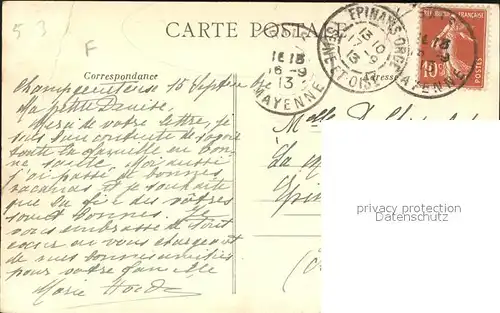 53
F
CARTE POSTALE
Correspondance
Adresse
EPINAY-S-ORGE
SEINE-ET-OISE
13 10
17-9
13
16-9
13
MAYENNE
MAYENNE
10c
15 Septembre
Ma petite Denise,
Merci de votre lettre, je
suis bien contente de savoir
toute la famille en bon-
ne santé. Moi aussi
j'ai passé de bonnes
vacances et je souhaite
que la fin des vôtres
soient bonnes. Je
vous embrasse de tout
cœur en vous chargeant
de mes bonnes amitiés
pour votre famille
Marie
Melle
La
privacy protection
Datenschutz